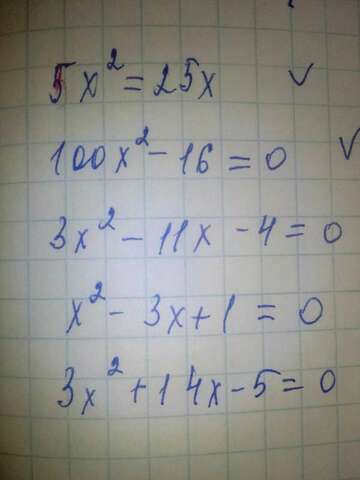 5x² = 25x ✓
100x² - 16 = 0 ✓
3x² - 11x - 4 = 0
x² - 3x + 1 = 0
3x² + 14x - 5 = 0